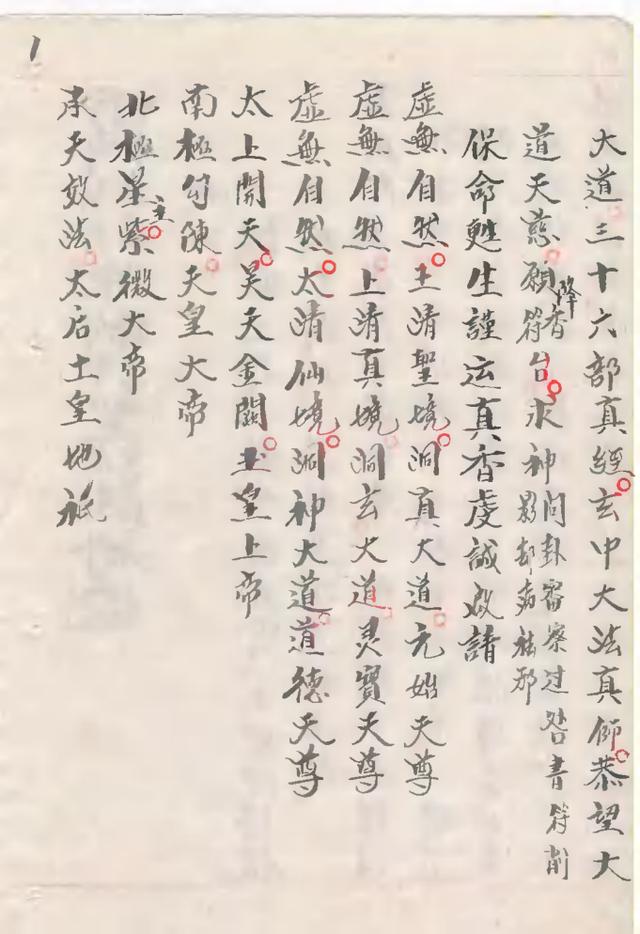 大道三十六部真經玄中大法真師恭望大
道天慈願降香符台求神問卦審察过咎書符削
影却病祛邪
保命甦生謹运真香虔誠啟請
虛無自然玉清聖境洞真大道元始天尊
虛無自然上清真境洞玄大道灵寶天尊
虛無自然太清仙境洞神大道道德天尊
太上開天昊天金闕玉皇上帝
南極勾陳天皇大帝
北極星主紫微大帝
承天效法太后土皇地祇
1